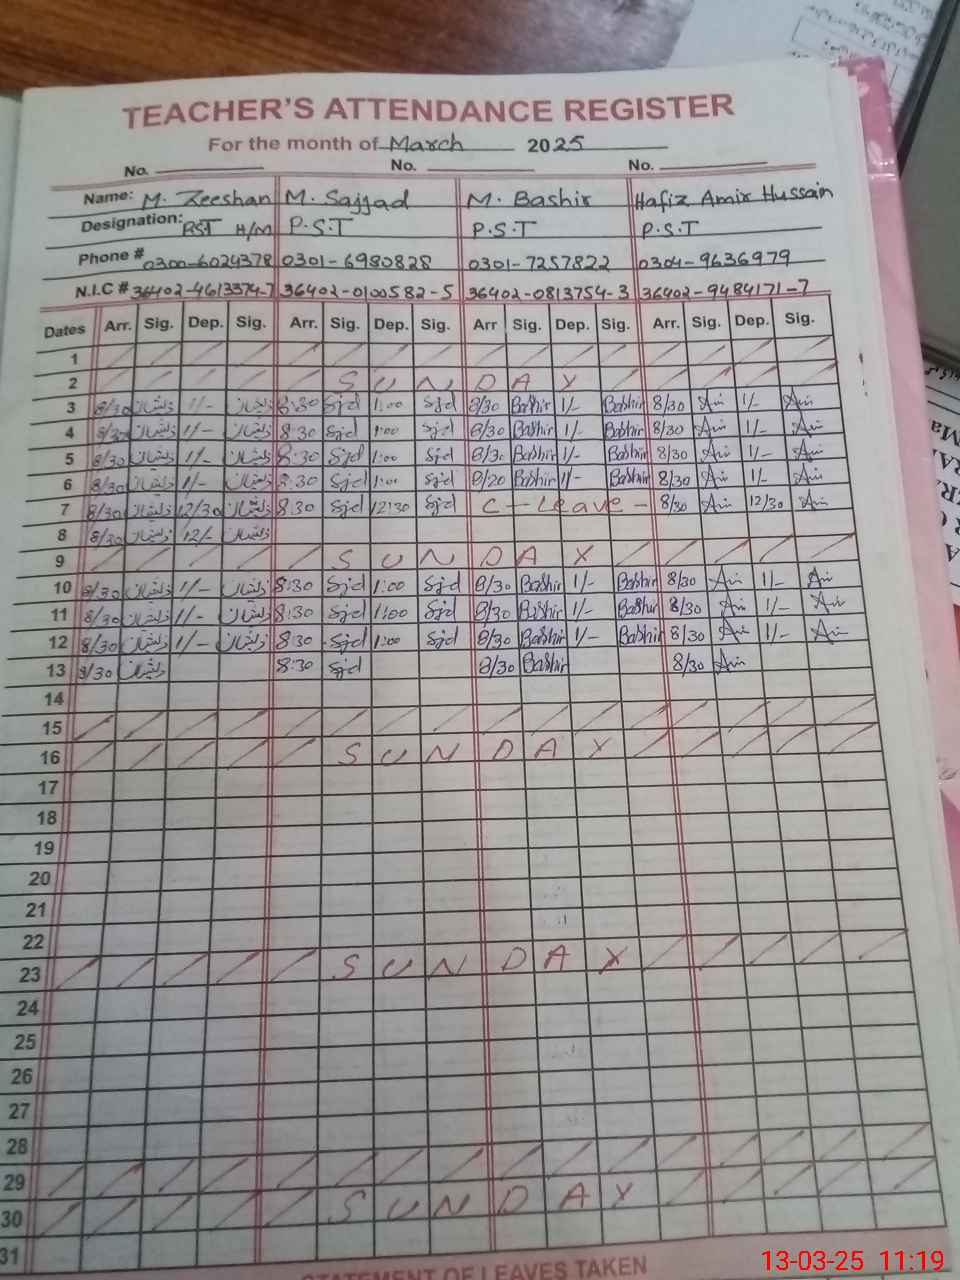 TEACHER'S ATTENDANCE REGISTER
For the month of March 2025
No. No. No.
Name: M. Zeeshan M. Sajjad M. Bashir Hafiz Amir Hussain
Designation: P.S.T H/M P.S.T P.S.T P.S.T
Phone # 0300-6024378 0301-6980828 0301-7257822 0304-9636979
N.I.C # 36402-4613374-7 36402-0100582-5 36402-0813754-3 36402-9484171-7
Dates Arr. Sig. Dep. Sig. Arr. Sig. Dep. Sig. Arr Sig. Dep. Sig. Arr. Sig. Dep. Sig.
1
2 SUNDAY
3 8/30 ذیشان 1/- ذیشان 8:30 Sjd 1:00 Sjd 8/30 Bashir 1/- Bashir 8/30 1/-
4 8/30 ذیشان 1/- ذیشان 8:30 Sjd 1:00 Sjd 8/30 Bashir 1/- Bashir 8/30 1/-
5 8/30 ذیشان 1/- ذیشان 8:30 Sjd 1:00 Sjd 8/30 Bashir 1/- Bashir 8/30 1/-
6 8/30 ذیشان 1/- ذیشان 8:30 Sjd 1:00 Sjd Bashir 1/- Bashir 8/30 1/-
7 8/30 ذیشان 12/30 ذیشان 8:30 Sjd 12:30 Sjd C-Leave- 8/30 12/30
8 8/30 ذیشان 12/- ذیشان
9 SUNDAY
10 8/30 ذیشان 1/- ذیشان 8:30 Sjd 1:00 Sjd 8/30 Bashir 1/- Bashir 8/30 1/-
11 8/30 ذیشان 1/- ذیشان 8:30 Sjd 1:00 Sjd 8/30 Bashir 1/- Bashir 8/30 1/-
12 8/30 ذیشان 1/- ذیشان 8:30 Sjd 1:00 Sjd 8/30 Bashir 1/- Bashir 8/30 1/-
13 8/30 ذیشان 8:30 Sjd 8/30 Bashir 8/30
14
15
16 SUNDAY
17
18
19
20
21
22
23 SUNDAY
24
25
26
27
28
29
30 SUNDAY
31
STATEMENT OF LEAVES TAKEN
13-03-25 11:19